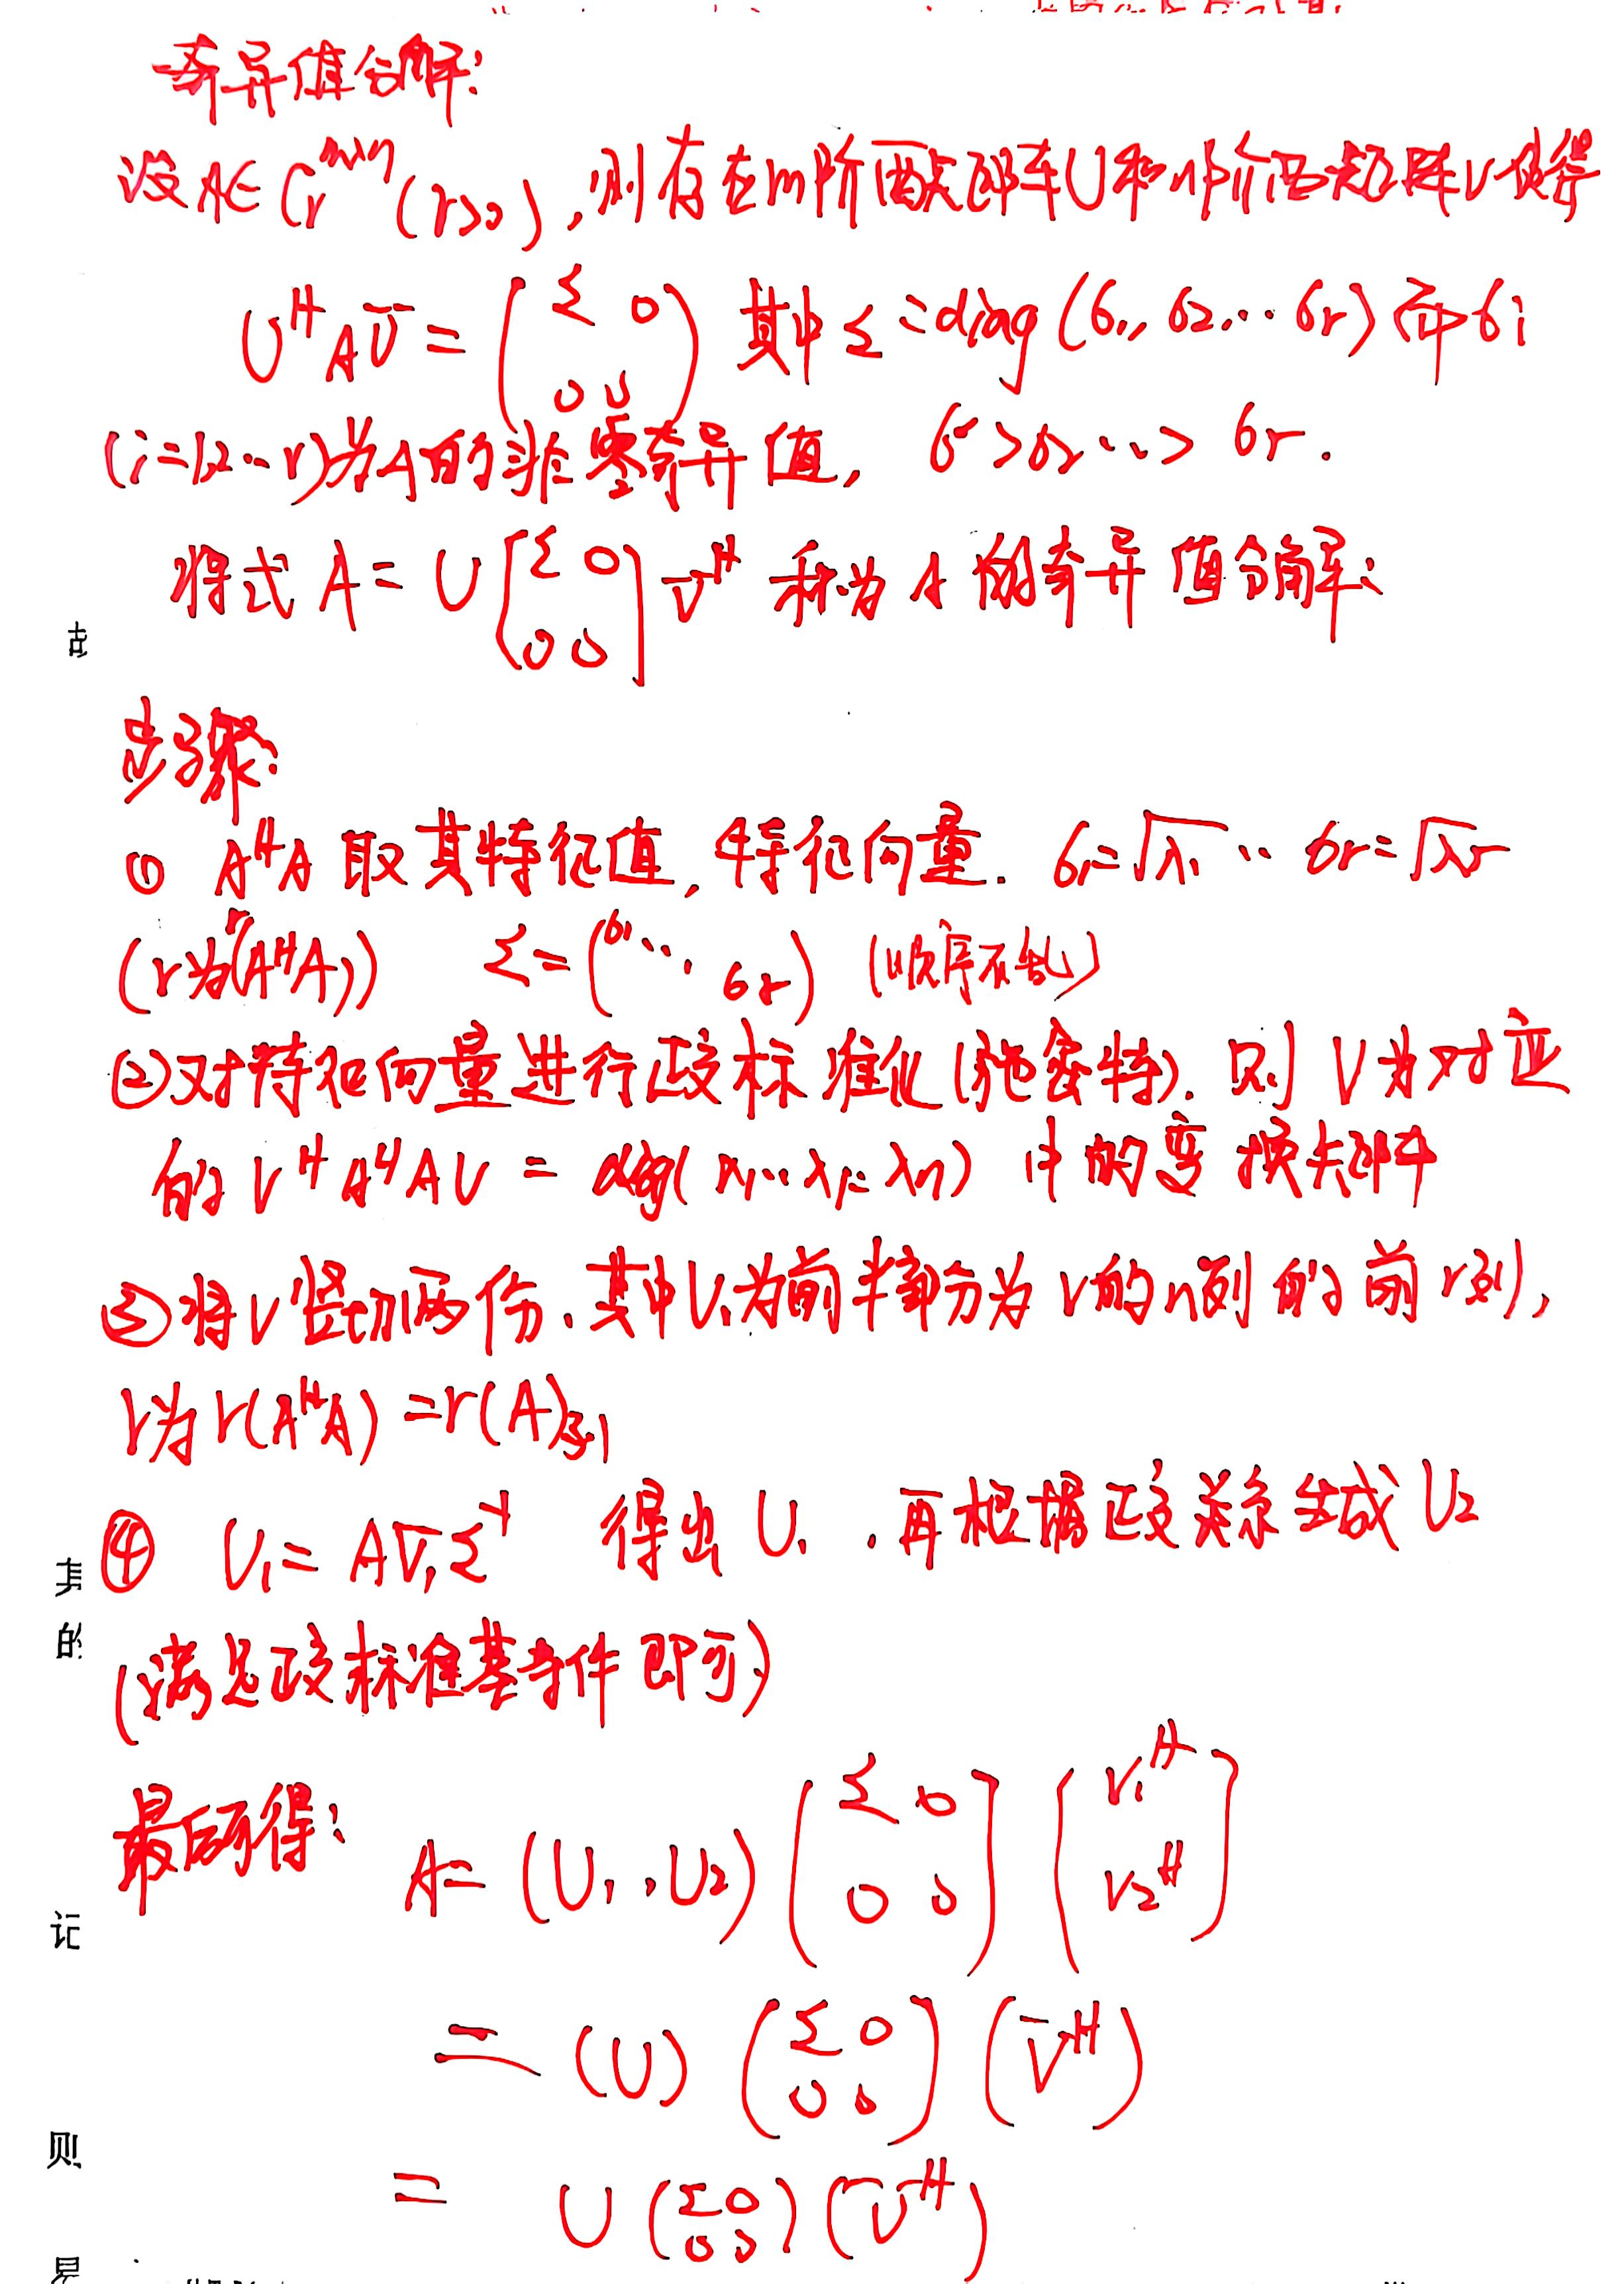 奇异值分解:
设A∈Cᵣᵐˣⁿ(r>0),则存在m阶酉矩阵U和n阶酉矩阵V使得
UᴴAV = (Σ 0
0 0) 其中Σ=diag(σ₁, σ₂…σᵣ) 而σᵢ
(i=1,2…r)为A的非零奇异值, σ₁>σ₂…>σᵣ.
将式 A = U[Σ 0
0 0]Vᴴ 称为A的奇异值分解:
故
步骤:
① AᴴA 取其特征值,特征向量. σ₁=√λ₁ … σᵣ=√λᵣ
(r为r(AᴴA)) Σ=(σ₁⋱σᵣ) (顺序不乱)
②对特征向量进行正交标准化(施密特).则V为对应
的VᴴAᴴAV = diag(λ₁…λᵢ…λn) 中的变换矩阵
③将V竖切两份.其中V₁为前半部分为V的n列的前r列,
r为r(AᴴA)=r(A)列
④ U₁=AV₁Σ⁻¹ 得出U₁.再根据正交关系生成U₂
其
的
(满足正交标准基条件即可)
最后可得:
A= (U₁,U₂) [Σ 0
0 0] [V₁ᴴ
V₂ᴴ]
记
= (U) (Σ 0
0 0) (Vᴴ)
则
= U (Σ 0
0 0) (Vᴴ)